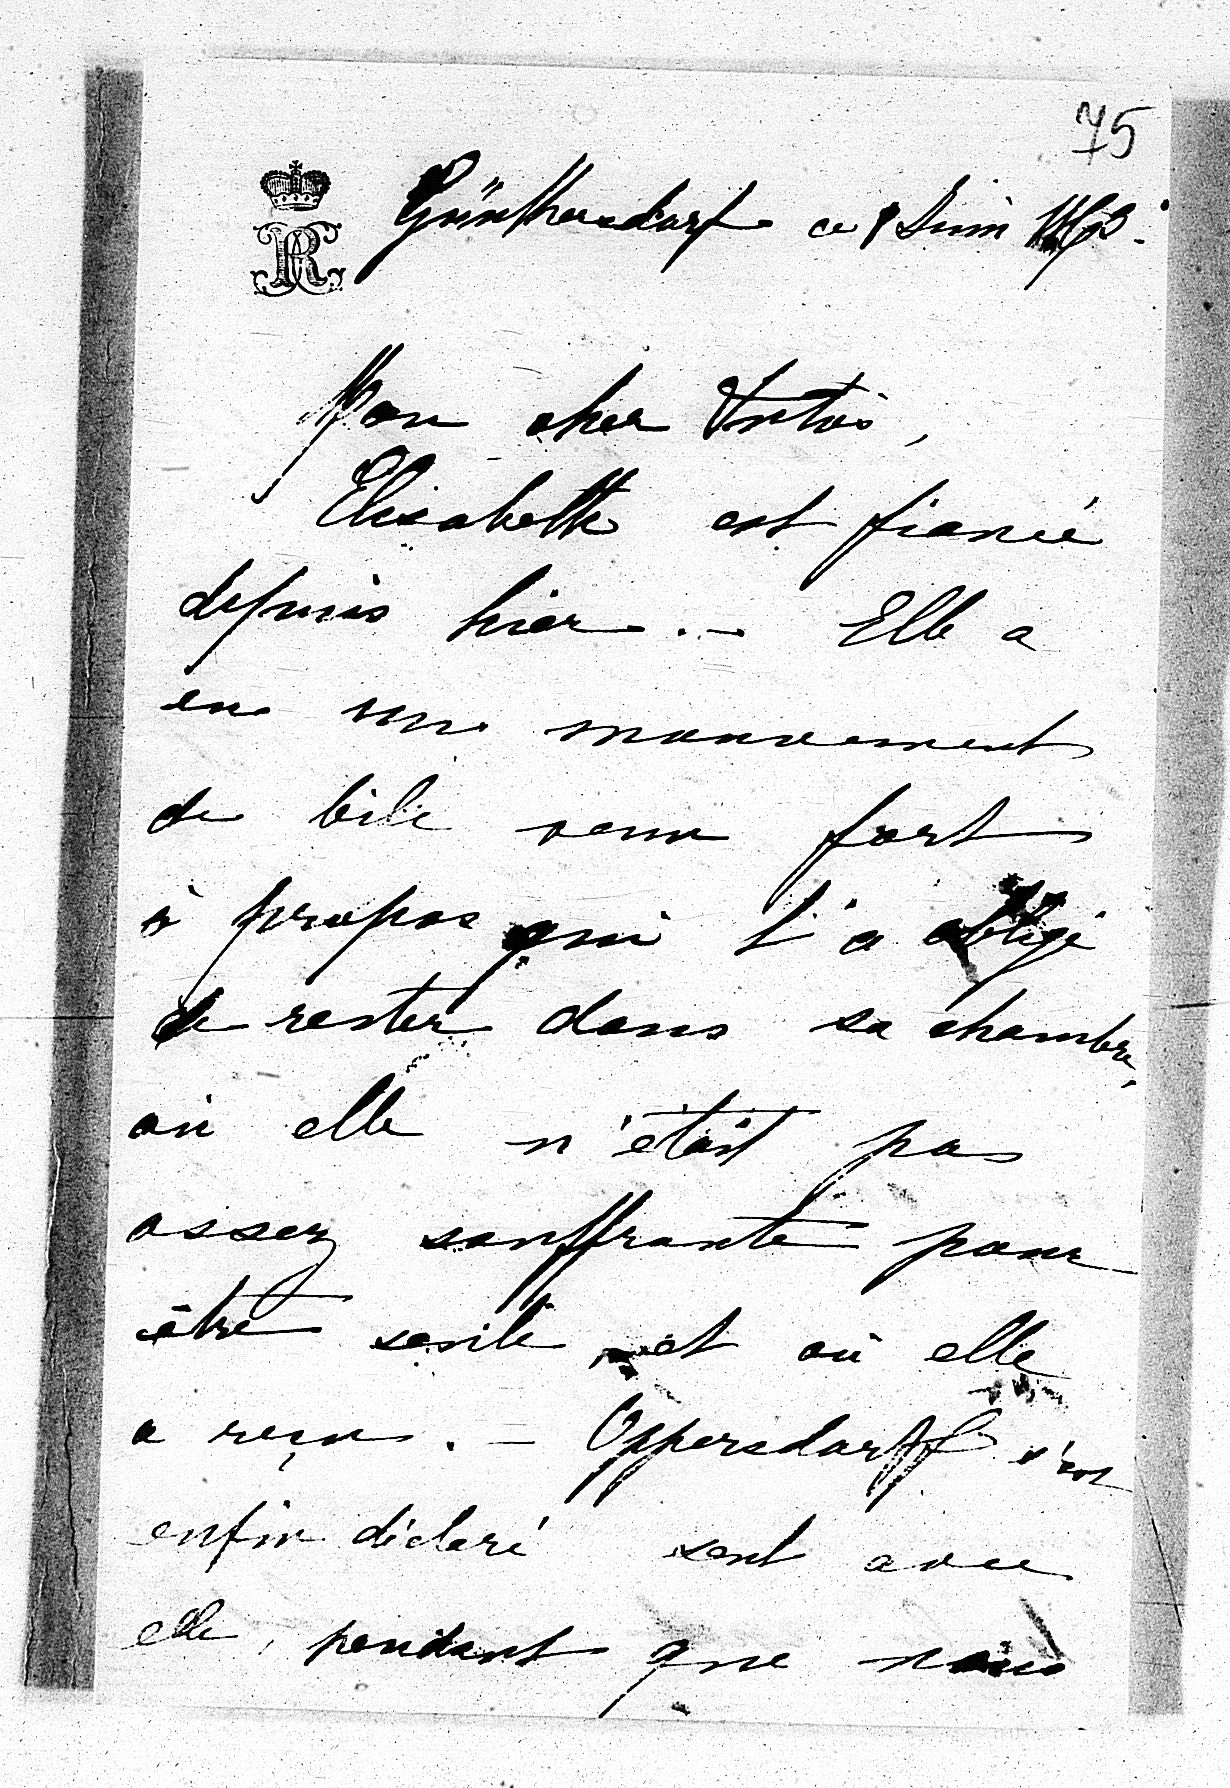 75
Günthersdorf ce 9 Juin 1863.
Mon cher Antoi,
Elisabeth est fiancée
depuis hier. — Elle a
eu un mouvement
de bile venu fort
à propos qui l'a obligé
de rester dans sa chambre,
où elle n'était pas
assez souffrante pour
être seule et où elle
a reçu. — Oppersdorff s'est
enfin déclaré seul avec
elle, pendant que nous